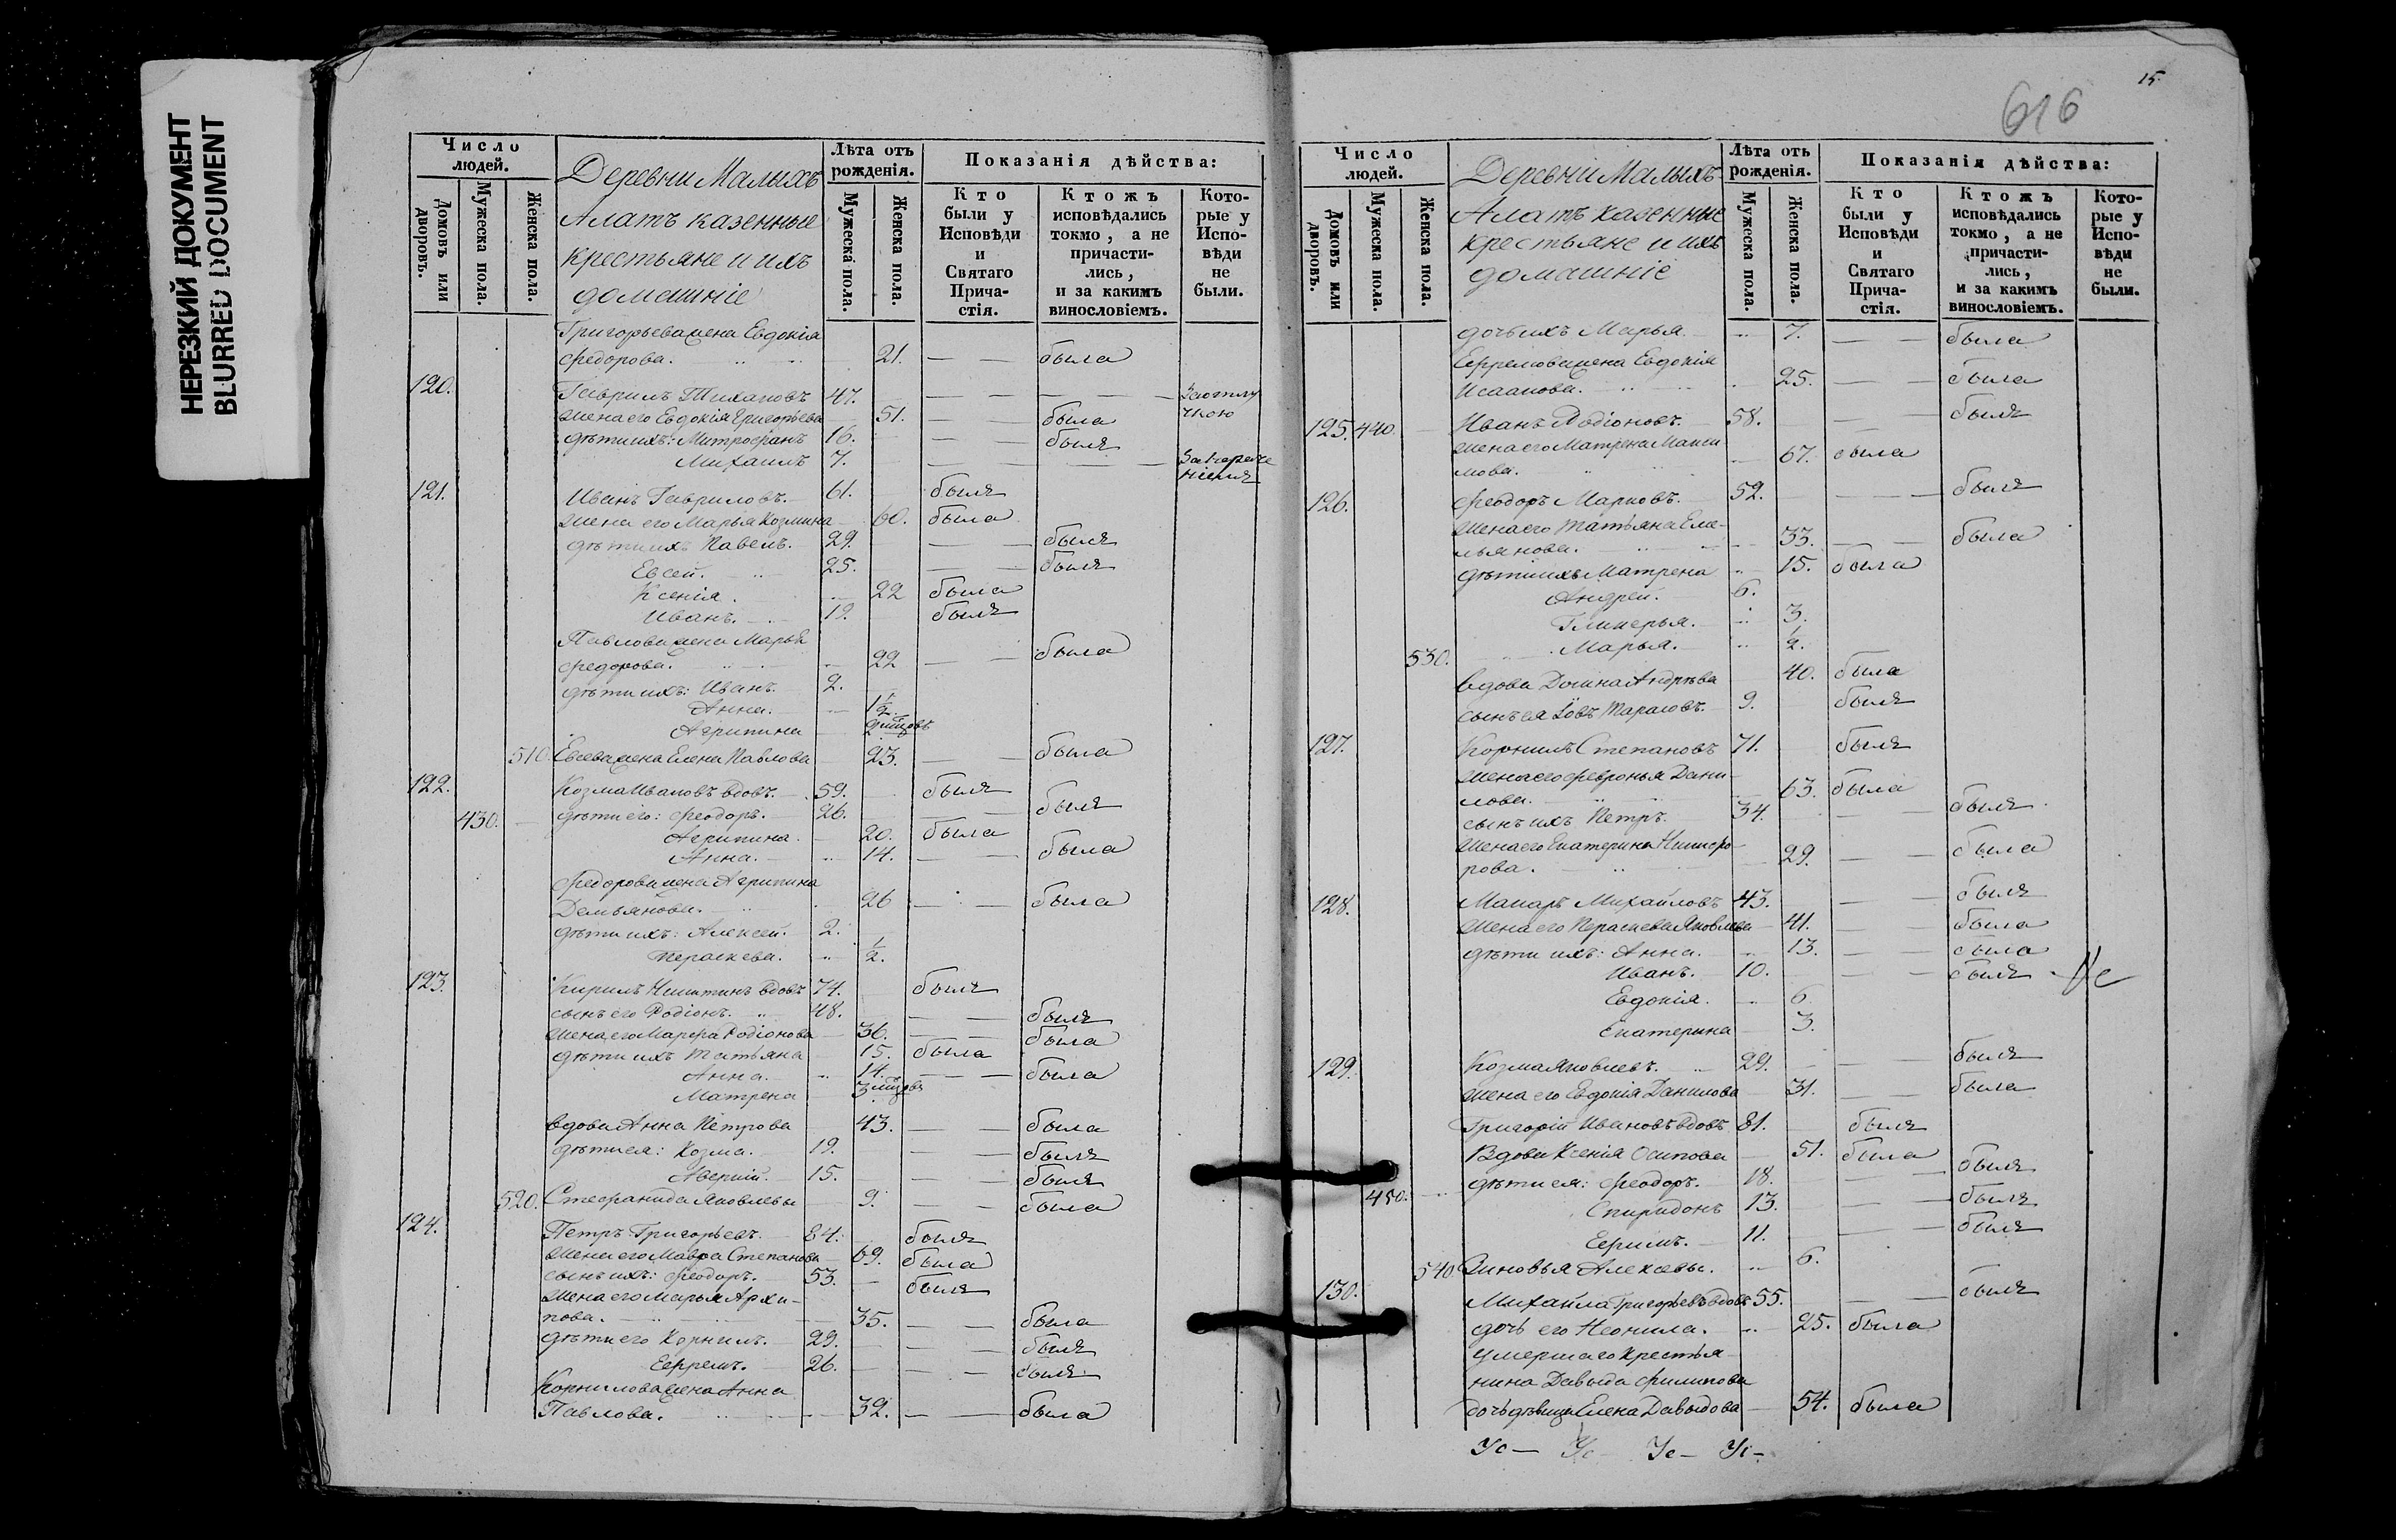 НЕРЕЗКИЙ ДОКУМЕНТ
BLURRED DOCUMENT
Число людей.
Домовъ или дворовъ.
Мужеска пола.
Женска пола.
Деревни Малыхъ
Алатъ казенные
крестьяне и ихъ
домашніе
Лѣта отъ рожденія.
Мужеска пола.
Женска пола.
Показанія дѣйства:
Кто были у Исповѣди и Святаго Прича-стія.
Ктожъ исповѣдались токмо, а не причасти-лись, и за какимъ винословіемъ.
Кото-рые у Испо-вѣди не были.
Григорьева жена Евдокія
Федорова. 21. — — была
120. Гаврилъ Тихановъ 47. — — — — — За отлу
жена его Евдокія Григорьева 51. — — была чкою
дѣти ихъ: Митрофанъ 16. — — былъ
Михаилъ 7. — — — —
121. Иванъ Гавриловъ. 61. былъ
жена его Марья Козмина 60. была
дѣти ихъ Павелъ. 29. — — былъ
Евсей. 25. — — былъ
Ксенія. 22 была
Иванъ. 19. былъ
Павлова жена Марья
Федорова. 22 — — была
дѣти ихъ: Иванъ. 2.
Анна. 1 1/2.
Агрипина 2 мцовъ
510. Евсева жена Елена Павлова 23. — — была
122. Козма Ивановъ вдовъ. 59. былъ
430. дѣти его: Феодоръ. 26. — — былъ
Агрипина. 20. была
Анна. 14. — — была
Федорова жена Агрипина
Демьянова. 26 — — была
дѣти ихъ: Алексей. 2.
Пераскева. 1/2.
123. Кирилъ Никитинъ вдовъ 74. былъ
сынъ его Родіонъ. 48. — — былъ
жена его Марфа Родіонова 36. — — была
дѣти ихъ Татьяна 15. была
Анна. 14. — — была
Матрена 3 мцовъ
вдова Анна Петрова 43. — — была
дѣти ея: Козма. 19. — — былъ
Аверкій. 15. — — былъ
520. Стефанида Яковлевы 9. — — была
124. Петръ Григорьевъ. 84. былъ
жена его Мавра Степанова 69. была
сынъ ихъ: Феодоръ. 53. былъ
жена его Марья Архи-
пова. 35. — — была
дѣти его Корнилъ. 29. — — былъ
Ефремъ. 26. — — былъ
Корнилова жена Анна
Павлова. 32. — — была
15.
616
Число людей.
Домовъ или дворовъ.
Мужеска пола.
Женска пола.
Деревни Малыхъ
Алатъ казенные
крестьяне и ихъ
домашніе
Лѣта отъ рожденія.
Мужеска пола.
Женска пола.
Показанія дѣйства:
Кто были у Исповѣди и Святаго Прича-стія.
Ктожъ исповѣдались токмо, а не причасти-лись, и за какимъ винословіемъ.
Кото-рые у Испо-вѣди не были.
дочь ихъ Марья 7. — — была
Ефремова жена Евдокія
Исаакова. 25. — — была
125. 440. Иванъ Родіоновъ. 58. — — былъ
жена его Матрена Макси
мова. 67. была
126. Феодоръ Марковъ. 52. — — былъ
жена его Татьяна Еме-
льянова. 33. — — была
дѣти ихъ Матрена 15. была
Андрей. 6.
Гликерья. 3.
530. Марья. 1/2.
вдова Домна Андрѣева 40. была
сынъ ея Іовъ Тарасовъ. 9. былъ
127. Корнилъ Степановъ 71. былъ
жена его Февронья Дани-
лова. 63. была
сынъ ихъ Петръ. 34. — — былъ
жена его Екатерина Никифо-
рова. 29. — — была
128. Макаръ Михайловъ 43. — — былъ
жена его Пераскева Яковлева 41. — — была
дѣти ихъ: Анна. 13. — — была
Иванъ. 10. — — былъ
Евдокія. 6.
Екатерина 3.
129. Козма Яковлевъ. 29. — — былъ
жена его Евдокія Данилова 31. — — была
Григорій Ивановъ вдовъ 81. былъ
Вдова Ксенія Осипова 51. была
450. дѣти ея: Феодоръ. 18. — — былъ
Спиридонъ 13. — — былъ
Ефимъ. 11. — — былъ
540. Зиновья Алексѣвы. 6.
130. Михайла Григорьевъ вдовъ 55. — — былъ
дочь его Неонила. 25. была
умершаго крестья
нина Давыда Филипова
дочь дѣвица Елена Давыдова 54. была